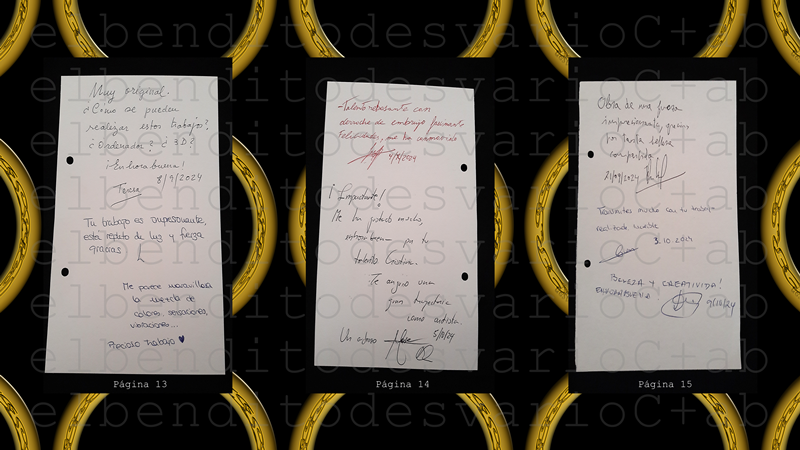 elbenditodesvaríoC+ab
Muy original.
¿Cómo se pueden
realizar estos trabajos?
¿Ordenador? ¿3D?
¡Enhorabuena!
8/9/2024
Teresa
Tu trabajo es impresionante,
está repleto de luz y fuerza
gracias
Me parece maravillosa
la mezcla de
colores, sensaciones,
vibraciones...
Precioso trabajo
Página 13
-Talento rebosante con
derroche de embrujo
Felicidades, me ha
¡Impactante!
Me ha gustado mucho,
enhorabuena por tu
trabajo Cristina.
Te auguro una
gran trayectoria
como artista.
Un abrazo
5/10/24
Página 14
Obra de una fuerza
impresionante, gracias
por tanta belleza
compartida.
21/09/2024
Transmites mucho con tu trabajo
3.10.2024
BELLEZA Y CREATIVIDAD!
ENHORABUENA
9/10/24
Página 15